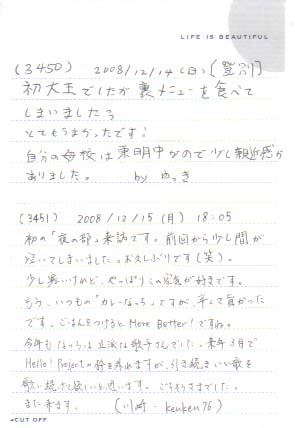 LIFE IS BEAUTIFUL
(3450) 2008/12/14(日) [登別]
初大王でしたが裏メニューを食べて
しまいましたョ
とてもうまかったです!
自分の母校は東明中なので少し親近感が
ありました。 by ゆっき
(3451) 2008/12/15(月) 18:05
初の「夜の部」来訪です。前回から少し間が
空いてしまいました。お久しぶりです(笑)。
少し寒いけれど、やっぱりこの空気が好きです。
もう、いつもの「カレーなっち」ですが、辛くて旨かった
です。ごはんをつけると More Better! ですね。
今年もなっちは立派な歌手さんでした。来年3月で
Hello! Projectの枠を外れますが、引き続きいい歌を
歌い続けて欲しいと思います。ごちそうさまでした。
また来ます。 (川崎・kenken76)
CUT OFF